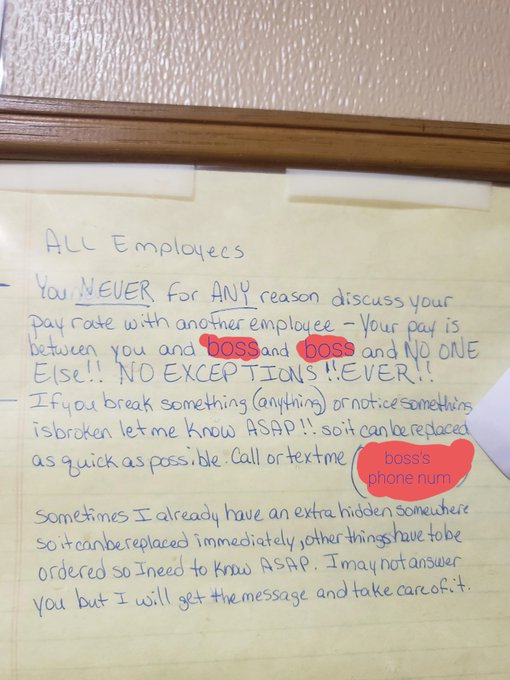 ALL Employees
You NEVER for ANY reason discuss your
pay rate with another employee - Your pay is
between you and boss and boss and NO ONE
Else!! NO EXCEPTIONS!! EVER!!
If you break something (anything) or notice something
is broken let me know ASAP!! so it can be replaced
as quick as possible. Call or text me (boss's
phone num
sometimes I already have an extra hidden somewhere
so it can be replaced immediately, other things have to be
ordered so I need to know ASAP. I may not answer
you but I will get the message and take care of it.